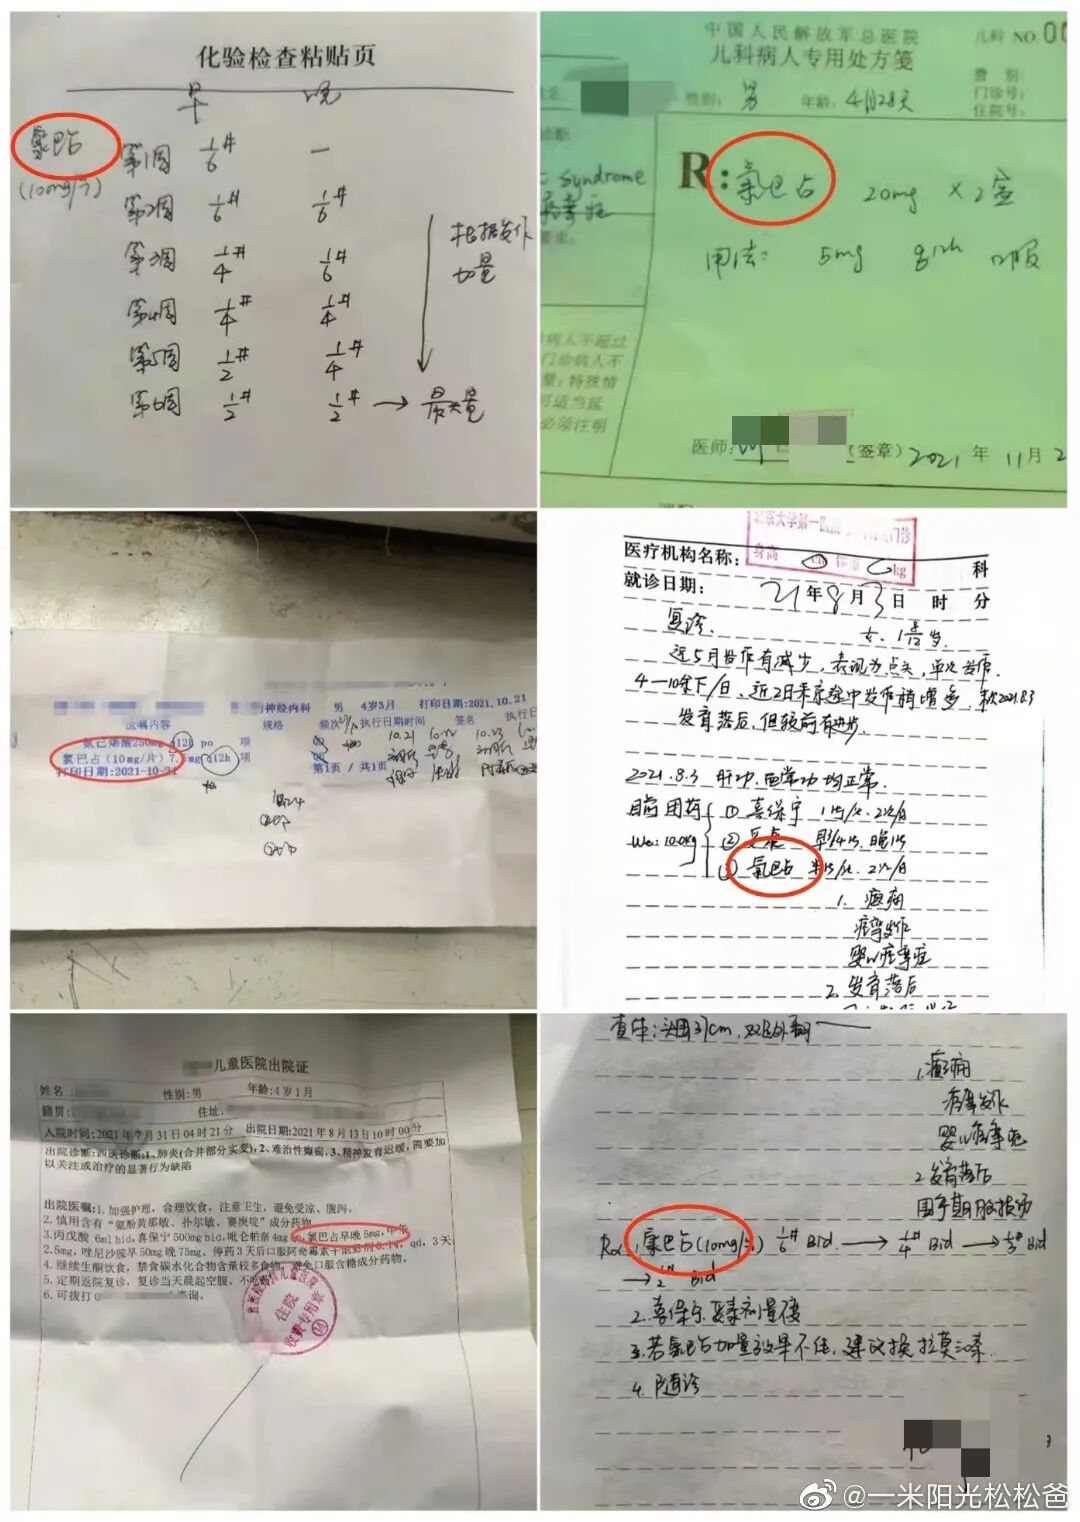 化验检查粘贴页
早 晚
氯巴占
(10mg/片)
第1周 1/6# —
第2周 1/6# 1/6#
第3周 1/4# 1/6#
第4周 1/4# 1/4#
第5周 1/2# 1/4#
第6周 1/2# 1/2# → 最大量
根据发作
加量
中国人民解放军总医院
儿科病人专用处方笺
儿科 NO.00
费 别:
门诊号:
住院号:
姓名
性别: 男 年龄: 4月28天
诊断
Syndrome
R:
氯巴占 20mg × 2盒
用法: 5mg q12h 口服
病人不超过
门诊病人不
量;特殊情
可适当延
必须注明
医师: (签章) 2021 年 11月2
神经内科 男 4岁3月 打印日期:2021.10.21
医嘱内容 规格 频次 执行日期时间 签名 执行日
氨己烯酸250mg q12h po 项
氯巴占(10mg/片)7.5mg q12h 项
打印日期:2021-10-21 第1页 / 共1页
10.21 10.22 10.23
北京大学第一医院 门诊
身高 cm 体重 kg
医疗机构名称: 科
就诊日期: 21年8月3日 时 分
复诊. 女.
近5月发作有减少,表现为点头,单次发作.
4-10余下/日、近2日来京途中发作稍增多,末次2021.8.3
发育落后,但较前有进步.
2021.8.3 肝功、血常功均正常.
目前用药 ① 喜保宁 1片/次.2次/日
Wt: 10.0kg ② 妥泰 早3/4片、晚1片
③ 氯巴占 半片/次.2次/日
1. 癫痫
痉挛发作
婴儿痉挛症
2. 发育落后
儿童医院出院证
姓名: 性别:男 年龄:4岁1月
籍贯: 住址:
入院时间:2021年7月31日04时21分 出院日期:2021年8月13日10时00分
出院诊断:西医诊断:1、肺炎(合并部分实变),2、难治性癫痫,3、精神发育迟缓,需要加
以关注或治疗的显著行为缺陷
出院医嘱:1.加强护理,合理饮食,注意卫生,避免受凉、腹泻。
2.慎用含有“氨酚黄那敏、扑尔敏、赛庚啶”成分药物
3.丙戊酸 6ml bid,喜保宁500mg bid,吡仑帕奈4mg 氯巴占早晚5mg,
2.5mg,唑尼沙胺早50mg晚75mg。停药3天后口服阿奇霉素干混悬剂 qd,3天
4.继续生酮饮食,禁食碳水化合物含量较多食物,避免口服含糖成分药物。
5.定期返院复诊,复诊当天晨起空腹、不吃
6.可拨打0 咨询。
住院
收费专用章
查体:头围37cm,双足外翻
1.癫痫
痉挛发作
婴儿痉挛症
2.发育落后
围产期脑损伤
Rx 1.氯巴占(10mg/片) 1/6# Bid → 1/4# Bid → 1/3# Bid
→ 1/2# Bid
2.喜保宁、妥泰剂量不变
3.若氯巴占加量效果不佳,建议换拉莫三嗪.
4.随诊
@一米阳光松松爸